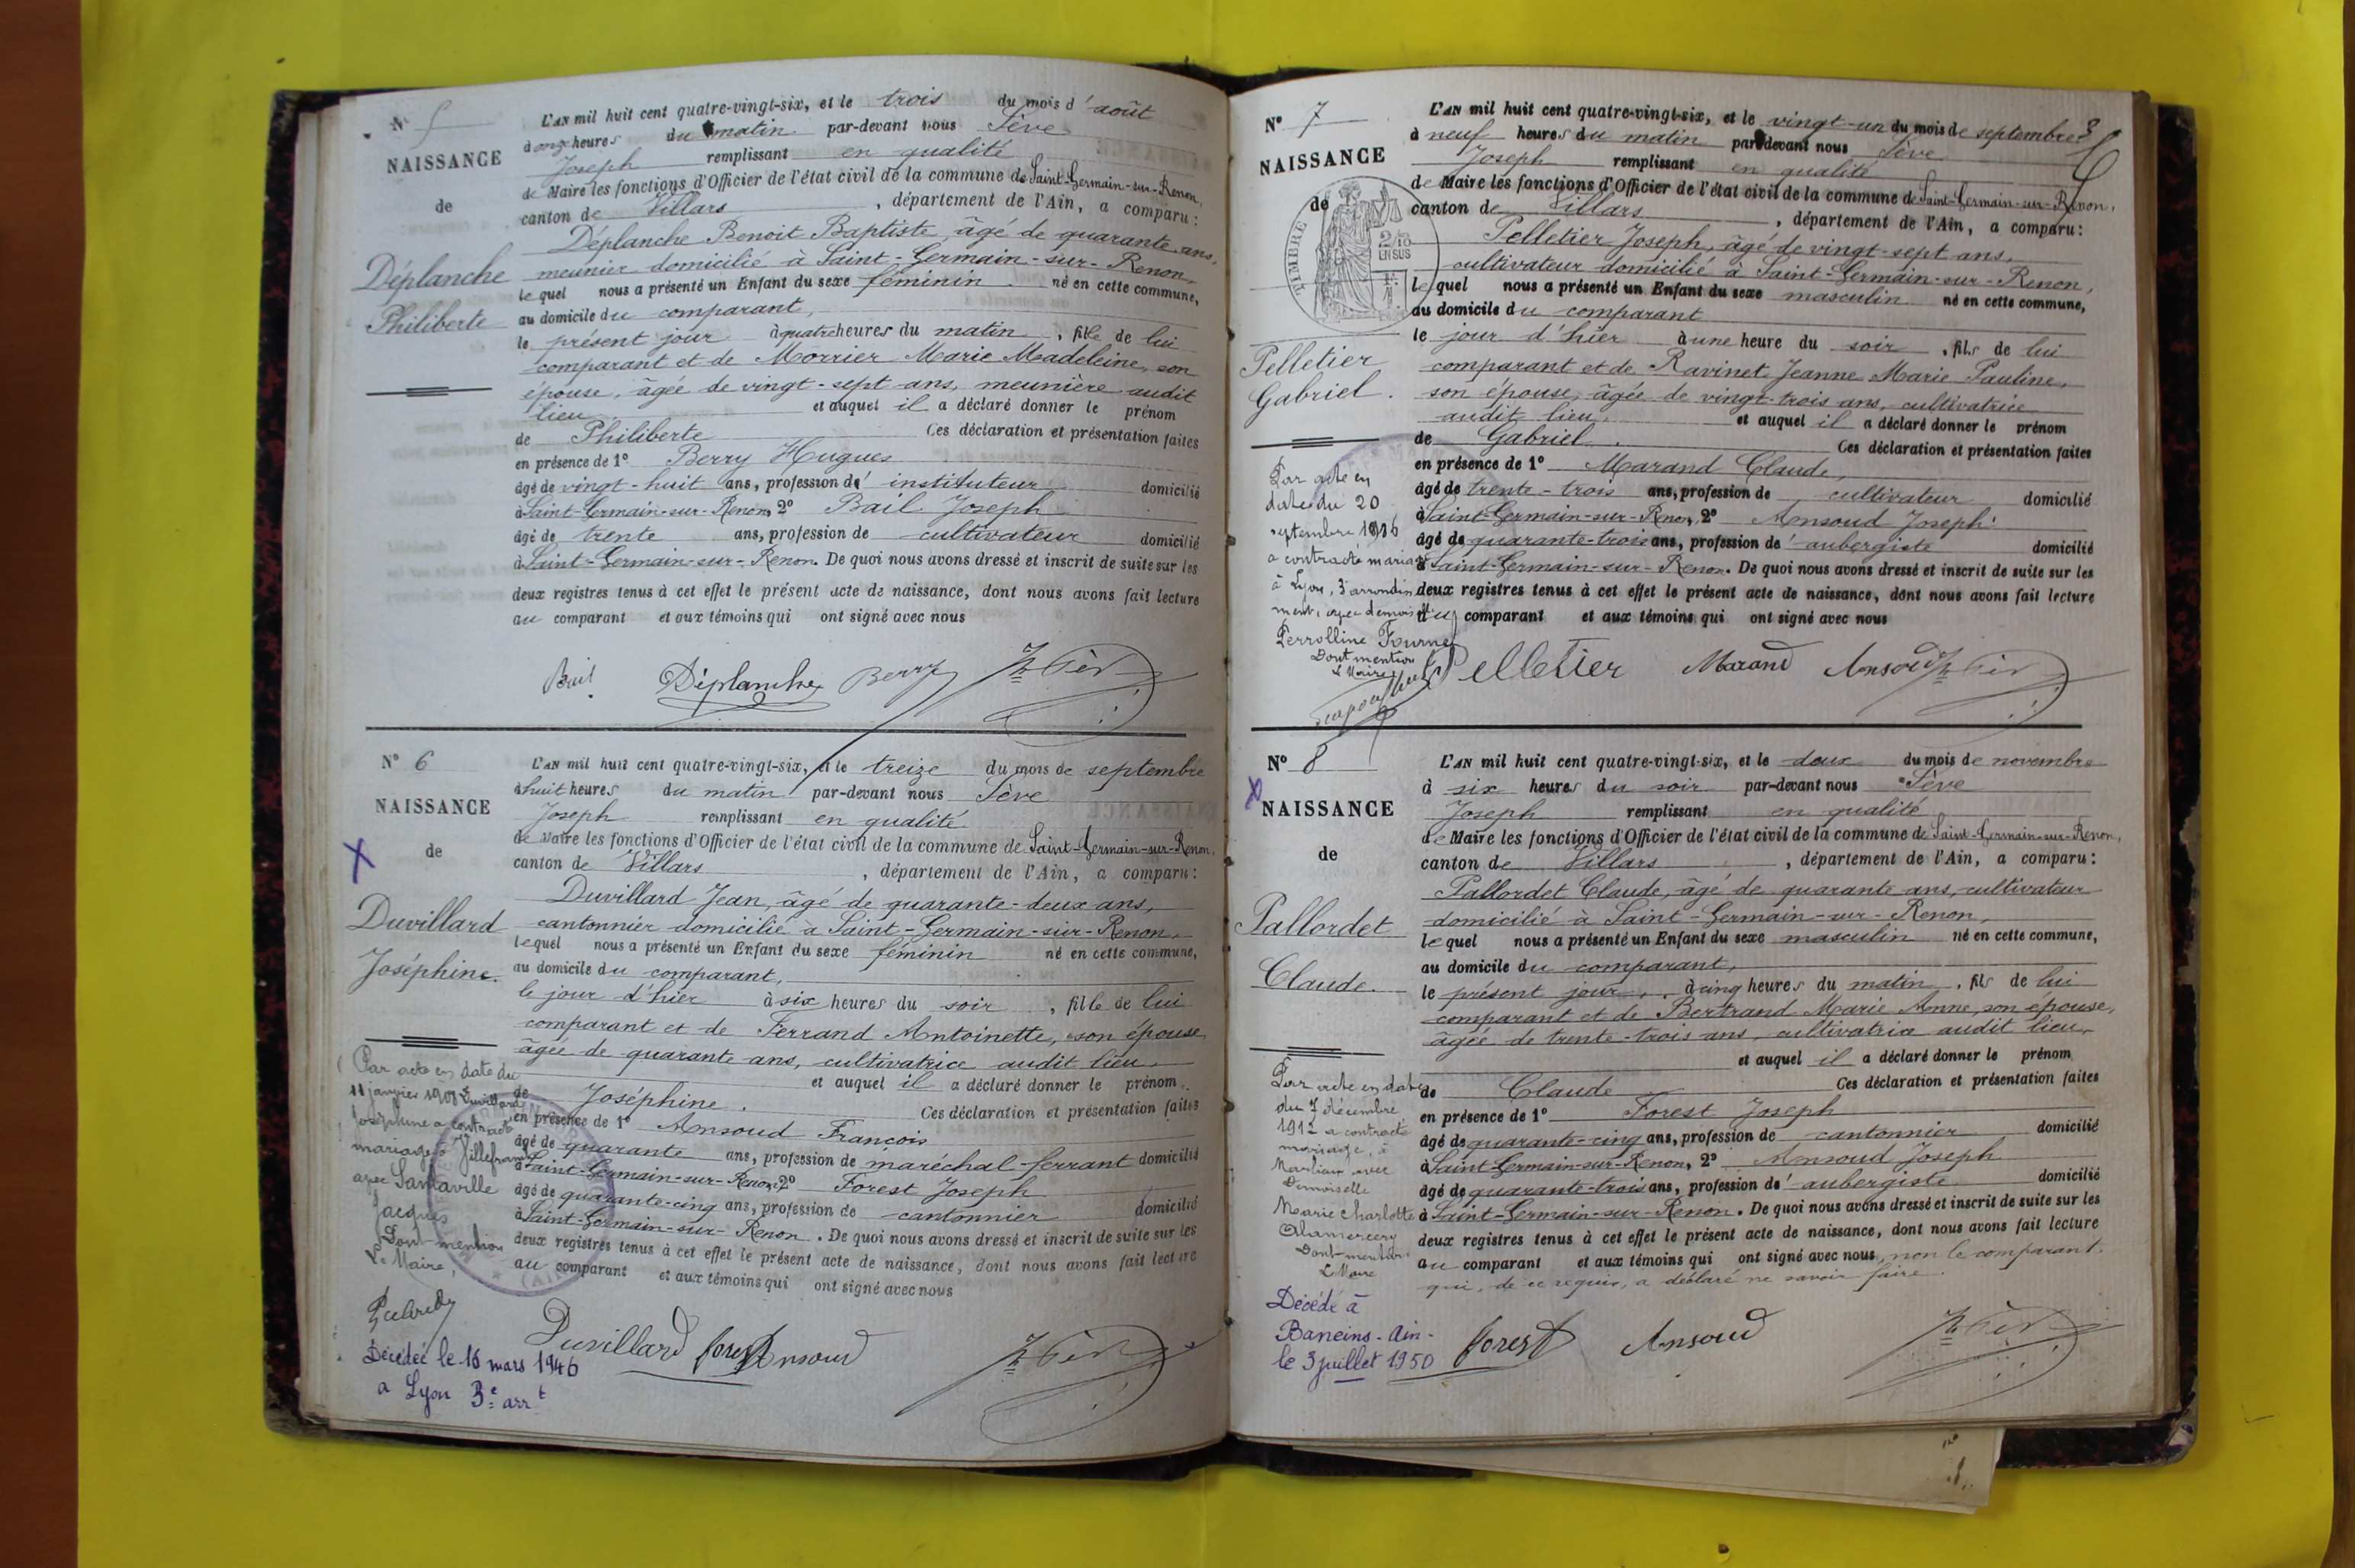 N° 5
NAISSANCE
de
Déplanche
Philiberte
L'AN mil huit cent quatre-vingt-six, et le trois du mois d'août
à onze heures du matin par-devant nous Sève
Joseph remplissant en qualité
de Maire les fonctions d'Officier de l'état civil de la commune de Saint-Germain-sur-Renon,
canton de Villars, département de l'Ain, a comparu :
Déplanche Benoit Baptiste, âgé de quarante ans,
meunier domicilié à Saint-Germain-sur-Renon,
lequel nous a présenté un Enfant du sexe féminin né en cette commune,
au domicile du comparant,
le présent jour à quatre heures du matin, fille de lui
comparant et de Morrier Marie Madeleine, son
épouse, âgée de vingt-sept ans, meunière audit
lieu et auquel il a déclaré donner le prénom
de Philiberte Ces déclaration et présentation faites
en présence de 1° Berry Hugues
âgé de vingt-huit ans, profession d' instituteur domicilié
à Saint-Germain-sur-Renon, 2° Bail Joseph
âgé de trente ans, profession de cultivateur domicilié
à Saint-Germain-sur-Renon. De quoi nous avons dressé et inscrit de suite sur les
deux registres tenus à cet effet le présent acte de naissance, dont nous avons fait lecture
au comparant et aux témoins qui ont signé avec nous
Bail Déplanche Berry Jh Sève
N° 6
NAISSANCE
de
Duvillard
Joséphine.
L'AN mil huit cent quatre-vingt-six, et le treize du mois de septembre
à huit heures du matin par-devant nous Sève
Joseph remplissant en qualité
de Maire les fonctions d'Officier de l'état civil de la commune de Saint-Germain-sur-Renon,
canton de Villars, département de l'Ain, a comparu :
Duvillard Jean, âgé de quarante-deux ans,
cantonnier domicilié à Saint-Germain-sur-Renon,
lequel nous a présenté un Enfant du sexe féminin né en cette commune,
au domicile du comparant,
le jour d'hier à six heures du soir, fille de lui
comparant et de Ferrand Antoinette, son épouse,
âgée de quarante ans, cultivatrice audit lieu,
et auquel il a déclaré donner le prénom
de Joséphine. Ces déclaration et présentation faites
en présence de 1° Ansoud François
âgé de quarante ans, profession de maréchal-ferrant domicilié
à Saint-Germain-sur-Renon, 2° Forest Joseph
âgé de quarante-cinq ans, profession de cantonnier domicilié
à Saint-Germain-sur-Renon. De quoi nous avons dressé et inscrit de suite sur les
deux registres tenus à cet effet le présent acte de naissance, dont nous avons fait lecture
au comparant et aux témoins qui ont signé avec nous
Par acte en date du
11 janvier Duvillard
Joséphine a contracté
mariage à Villefranche
avec Santaville
Jacques
Dont mention
Le Maire,
Duvillard Forest Ansoud Jh Sève
Décédée le 16 mars 1946
à Lyon 3e arrt
N° 7
NAISSANCE
de
TIMBRE
2/10
EN SUS
Pelletier
Gabriel.
L'AN mil huit cent quatre-vingt-six, et le vingt-un du mois de septembre
à neuf heures du matin par-devant nous Sève
Joseph remplissant en qualité
de Maire les fonctions d'Officier de l'état civil de la commune de Saint-Germain-sur-Renon,
canton de Villars, département de l'Ain, a comparu :
Pelletier Joseph, âgé de vingt-sept ans,
cultivateur domicilié à Saint-Germain-sur-Renon,
lequel nous a présenté un Enfant du sexe masculin né en cette commune,
au domicile du comparant
le jour d'hier à une heure du soir, fils de lui
comparant et de Ravinet Jeanne Marie Pauline,
son épouse, âgée de vingt-trois ans, cultivatrice
audit lieu, et auquel il a déclaré donner le prénom
de Gabriel. Ces déclaration et présentation faites
en présence de 1° Marand Claude,
âgé de trente-trois ans, profession de cultivateur domicilié
à Saint-Germain-sur-Renon, 2° Ansoud Joseph
âgé de quarante-trois ans, profession d' aubergiste domicilié
à Saint-Germain-sur-Renon. De quoi nous avons dressé et inscrit de suite sur les
deux registres tenus à cet effet le présent acte de naissance, dont nous avons fait lecture
au comparant et aux témoins qui ont signé avec nous
Par acte en
date du 20
septembre 1916
a contracté mariage
à Lyon, 3e arrondisse
ment, avec demoiselle
Perrolline Fournel
Dont mention
Le Maire
Pelletier Marand Ansoud Jh Sève
N° 8
NAISSANCE
de
Pallordet
Claude.
L'AN mil huit cent quatre-vingt-six, et le deux du mois de novembre
à six heures du soir par-devant nous Sève
Joseph remplissant en qualité
de Maire les fonctions d'Officier de l'état civil de la commune de Saint-Germain-sur-Renon,
canton de Villars, département de l'Ain, a comparu :
Pallordet Claude, âgé de quarante ans, cultivateur
domicilié à Saint-Germain-sur-Renon,
lequel nous a présenté un Enfant du sexe masculin né en cette commune,
au domicile du comparant,
le présent jour, à cinq heures du matin, fils de lui
comparant et de Bertrand Marie Anne, son épouse,
âgée de trente-trois ans, cultivatrice audit lieu,
et auquel il a déclaré donner le prénom
de Claude Ces déclaration et présentation faites
en présence de 1° Forest Joseph
âgé de quarante-cinq ans, profession de cantonnier domicilié
à Saint-Germain-sur-Renon, 2° Ansoud Joseph
âgé de quarante-trois ans, profession d' aubergiste domicilié
à Saint-Germain-sur-Renon. De quoi nous avons dressé et inscrit de suite sur les
deux registres tenus à cet effet le présent acte de naissance, dont nous avons fait lecture
au comparant et aux témoins qui ont signé avec nous, non le comparant
qui, de ce requis, a déclaré ne savoir faire.
Par acte en date
du 7 décembre
1912 a contracté
mariage, à
Marlieux avec
Demoiselle
Marie Charlotte
Chamerery
Dont mention
Le Maire
Décédé à
Baneins - Ain -
le 3 juillet 1950
Forest Ansoud Jh Sève